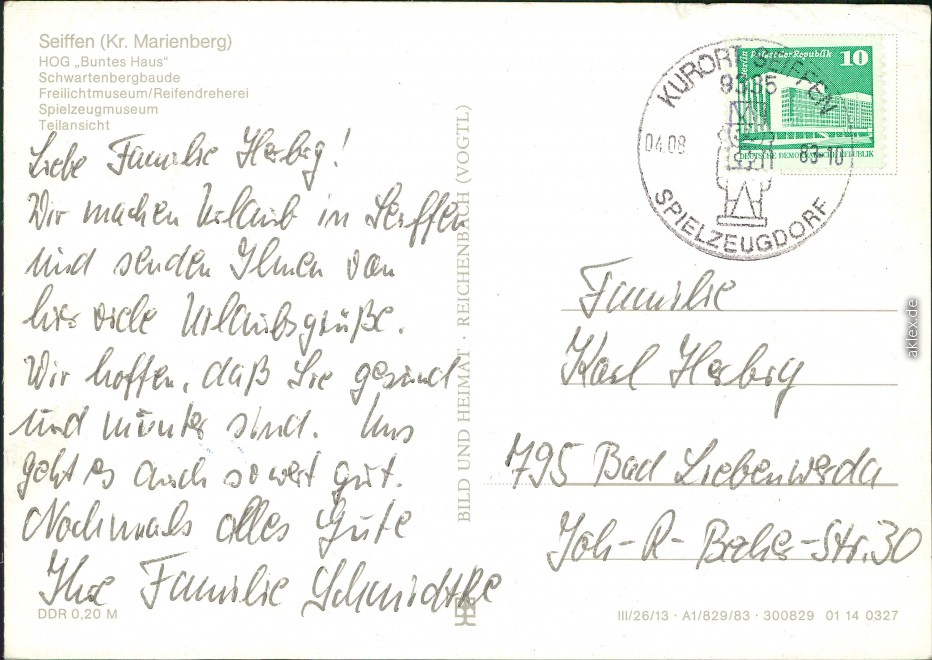 Seiffen (Kr. Marienberg)
HOG „Buntes Haus"
Schwartenbergbaude
Freilichtmuseum/Reifendreherei
Spielzeugmuseum
Teilansicht
Liebe Familie Herbrg!
Wir machen Urlaub in Seiffen
und senden Ihnen von
hier viele Urlaubsgrüße.
Wir hoffen, daß Sie gesund
und munter sind. Uns
geht es auch soweit gut.
Nochmals alles Gute
Ihre Familie Schmidtke
DDR 0,20 M
BILD UND HEIMAT · REICHENBACH (VOGTL)
KURORT SEIFFEN
9335
04.08
83-10
SPIELZEUGDORF
10
DEUTSCHE DEMOKRATISCHE REPUBLIK
Familie
Karl Herbrg
795 Bad Liebenwerda
Joh-R-Becher-Str.30
III/26/13 · A1/829/83 · 300829 01 14 0327
aklex.de